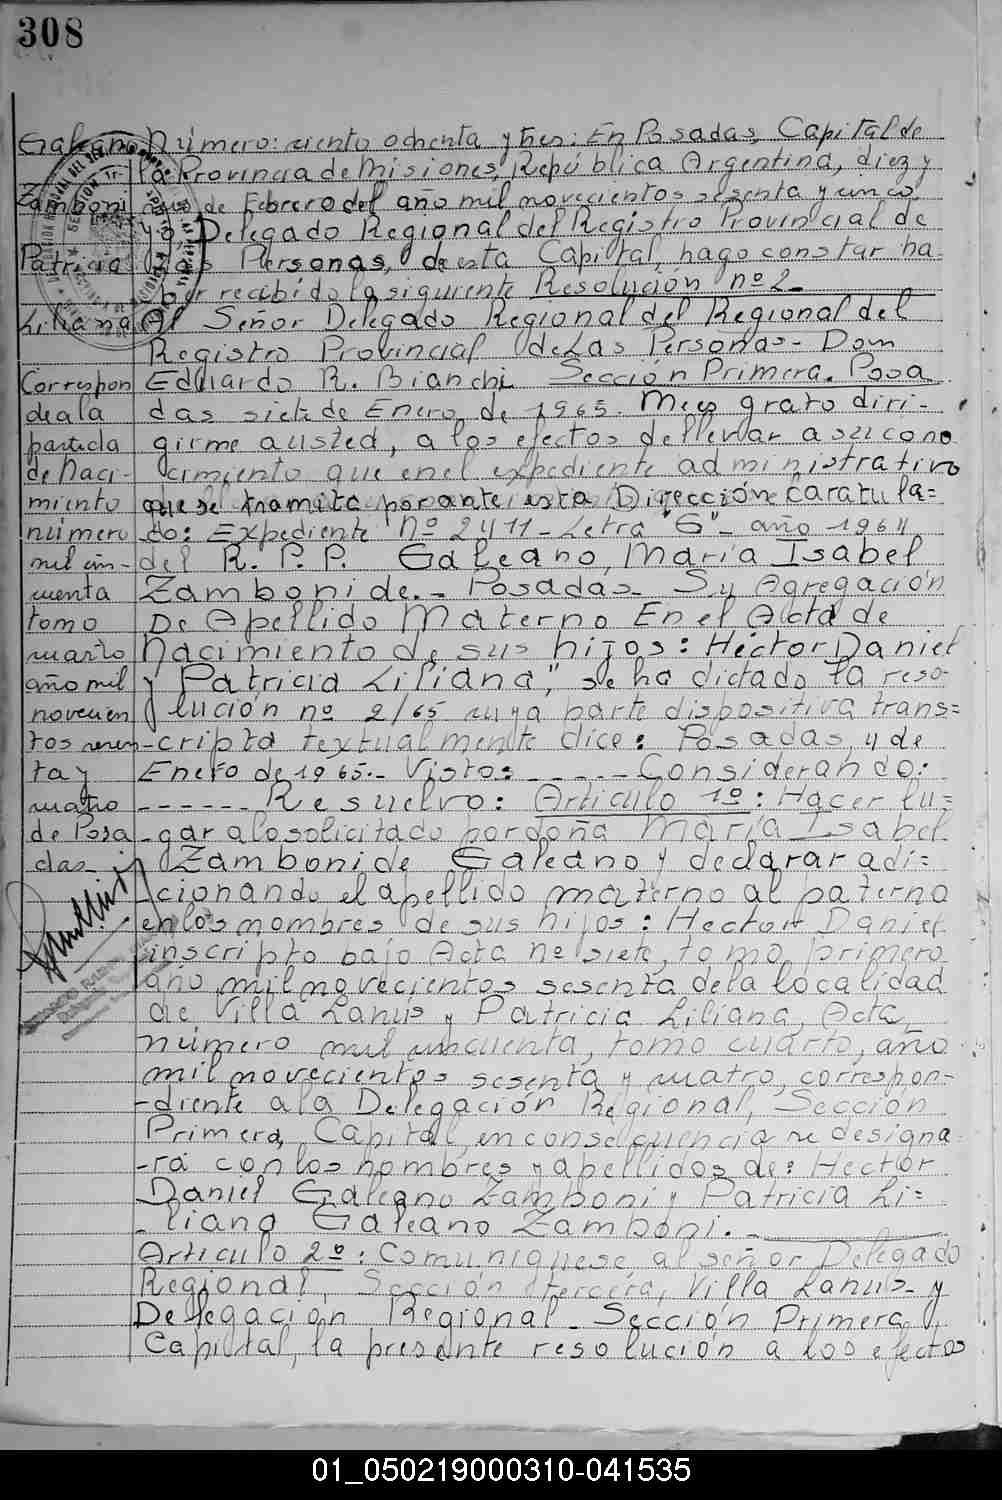 308
Galeano
Zamboni
Patricia
Liliana
Correspon
de a la
partida
de naci-
miento
número
mil cin-
cuenta
tomo
cuarto
año mil
novecien
tos sesen
ta y
cuatro
de Posa
das
Número: ciento ochenta y tres: En Posadas, Capital de
la Provincia de Misiones, República Argentina, diez y
de Febrero del año mil novecientos sesenta y cinco
yo, Delegado Regional del Registro Provincial de
las Personas, de esta Capital, hago constar ha-
ber recibido la siguiente Resolución nº 2-
Al Señor Delegado Regional del Regional del
Registro Provincial de Las Personas- Dom
Eduardo R. Bianchi Sección Primera. Posa
das siete de Enero de 1965. Muy grato diri-
girme a usted, a los efectos de llevar a su cono
cimiento que en el expediente administrativo
que se tramita por ante esta Dirección Caratula=
do: Expediente nº 2411- Letra "G"- año 1964
del R. P. P. Galeano, María Isabel
Zamboni de.- Posadas- Su Agregación
De Apellido Materno En el Acta de
nacimiento de sus hijos: Héctor Daniel
y Patricia Liliana", se ha dictado la reso-
lución nº 2/65 cuya parte dispositiva trans=
-cripta textualmente dice: Posadas, y de
Enero de 1965.- Vistos _ _ _ _ _ Considerando:
_ _ _ _ _ _ Resuelvo: Articulo 1º: Hacer lu=
-gar a lo solicitado por doña María Isabel
Zamboni de Galeano y declarar adi=
cionando el apellido materno al paterno
en los nombres de sus hijos: Hector Daniel
inscripto bajo Acta nº siete, tomo primero
año mil novecientos sesenta de la localidad
de Villa Lanús y Patricia Liliana, Acta
número mil cincuenta, tomo cuarto, año
mil novecientos sesenta y cuatro, correspon-
-diente a la Delegación Regional, Sección
Primera, Capital, en consecuencia se designa-
-rá con los nombres y apellidos de: Hector
Daniel Galeano Zamboni y Patricia Li=
-liana Galeano Zamboni.-
Articulo 2º: Comuniquese al señor Delegado
Regional, Sección tercera, Villa Lanús- y
Delegación Regional- Sección Primera,
Capital, la presente resolución a los efectos
01_050219000310-041535